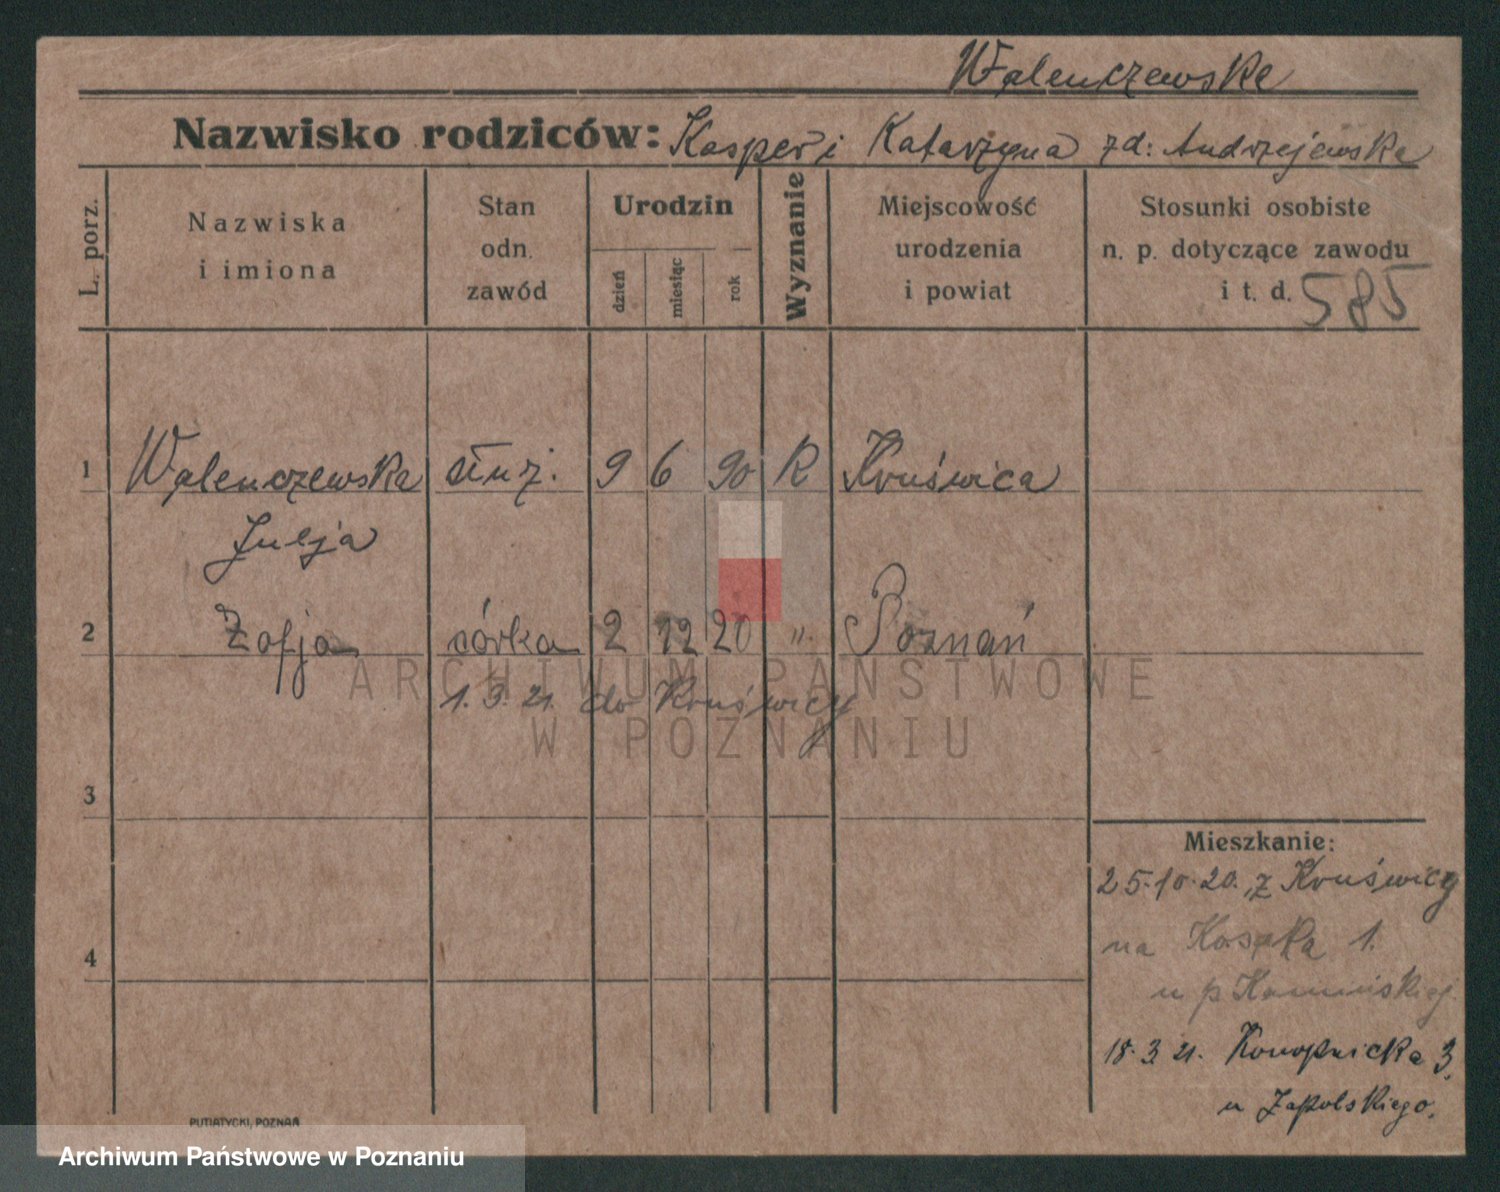 Walenczewska
Nazwisko rodziców: Kasper i Katarzyna zd: Andrzejewska
L. porz.
Nazwiska
i imiona
Stan
odn.
zawód
Urodzin
dzień
miesiąc
rok
Wyznanie
Miejscowość
urodzenia
i powiat
Stosunki osobiste
n. p. dotyczące zawodu
i t. d.
585
1 Walenczewska służ. 9 6 90 R Kruświca
Julja
2 Zofja córka 2 12 20 " Poznań
1.3.21. do Kruświcy
3
4
Mieszkanie:
25.10.20. z Kruświcy
na Kosaka 1.
u p Kamińskiej
18.3.21. Konopnicka 3.
u Zapolskiego.
PUTIATYCKI, POZNAŃ
ARCHIWUM PAŃSTWOWE
W POZNANIU
Archiwum Państwowe w Poznaniu